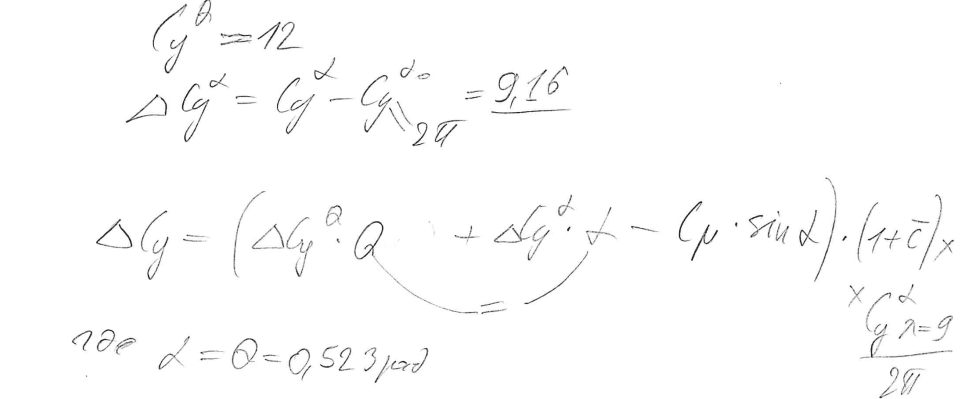 Cy^θ = 12
ΔCy^α = Cy^α − Cy^α₀ = 9,16
2π
ΔCy = (ΔCy^θ · θ + ΔCy^α · α − Cμ · sin α) · (1 + c̄) ×
=
× Cy^α λ=9
2π
где α = θ = 0,523 рад